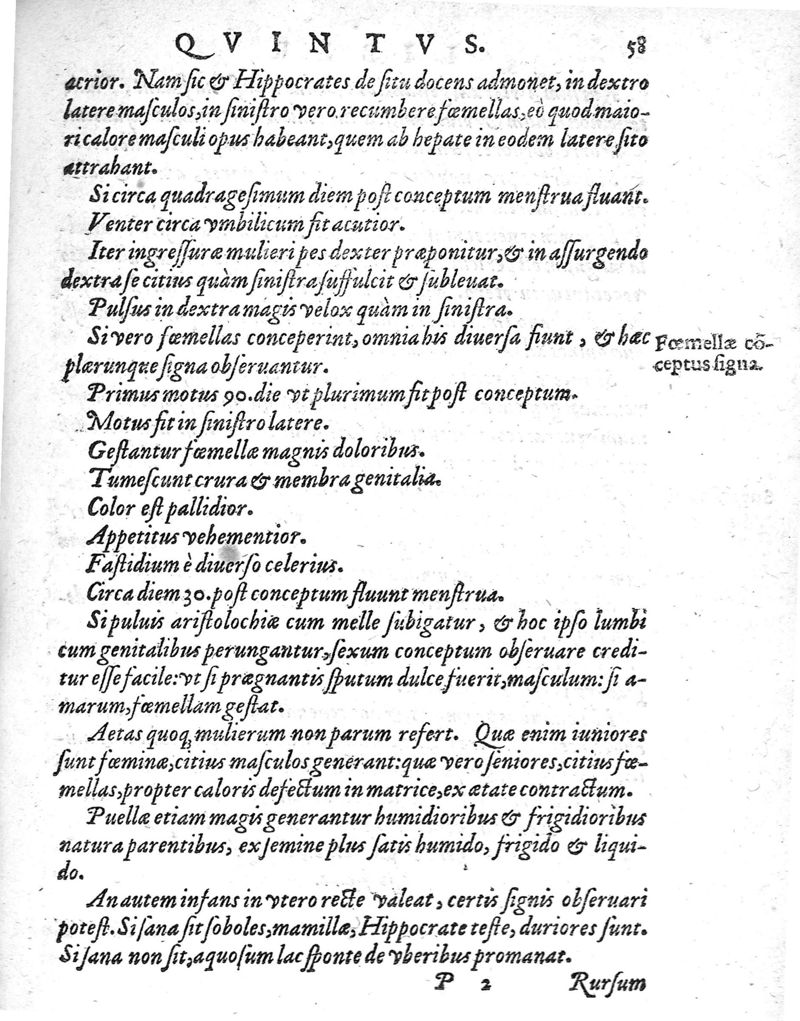 QVINTVS. 58
acrior. Nam ſic & Hippocrates de ſitu docens admonet, in dextro
latere maſculos, in ſiniſtro vero recumbere fœmellas, eò quod maio-
ri calore maſculi opus habeant, quem ab hepate in eodem latere ſito
attrahant.
Si circa quadrageſimum diem poſt conceptum menſtrua fluant.
Venter circa vmbilicum fit acutior.
Iter ingreſſuræ mulieri pes dexter præponitur, & in aſſurgendo
dextra ſe citius quàm ſiniſtra ſuffulcit & ſubleuat.
Pulſus in dextra magis velox quàm in ſiniſtra.
Si vero fœmellas conceperint, omnia his diuerſa fiunt, & hæc
plærunque ſigna obſeruantur.
Fœmellæ cō-
ceptus ſigna.
Primus motus 90. die vt plurimum fit poſt conceptum.
Motus fit in ſiniſtro latere.
Geſtantur fœmellæ magnis doloribus.
Tumeſcunt crura & membra genitalia.
Color eſt pallidior.
Appetitus vehementior.
Faſtidium è diuerſo celerius.
Circa diem 30. poſt conceptum fluunt menſtrua.
Si puluis ariſtolochiæ cum melle ſubigatur, & hoc ipſo lumbi
cum genitalibus perungantur, ſexum conceptum obſeruare credi-
tur eſſe facile: vt ſi prægnantis ſputum dulce fuerit, maſculum: ſi a-
marum, fœmellam geſtat.
Aetas quoq; mulierum non parum refert. Quæ enim iuniores
ſunt fœminæ, citius maſculos generant: quæ vero ſeniores, citius fœ-
mellas, propter caloris defectum in matrice, ex ætate contractum.
Puellæ etiam magis generantur humidioribus & frigidioribus
natura parentibus, ex ſemine plus ſatis humido, frigido & liqui-
do.
An autem infans in vtero recte valeat, certis ſignis obſeruari
poteſt. Si ſana ſit ſoboles, mamillæ, Hippocrate teſte, duriores ſunt.
Si ſana non ſit, aquoſum lac ſponte de vberibus promanat.
P 2 Rurſum